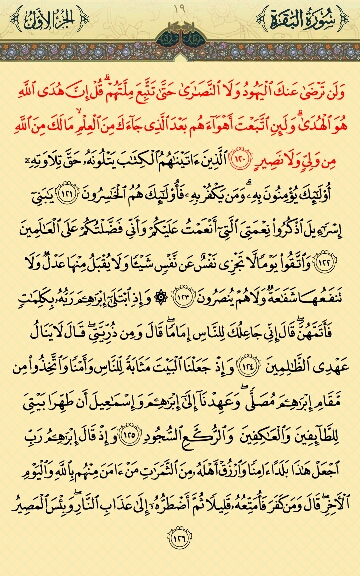 سُورَةُ البَقَرَةِ ١٩ الجُزْءُ الأَوَّلُ
وَلَن تَرْضَىٰ عَنكَ ٱلْيَهُودُ وَلَا ٱلنَّصَٰرَىٰ حَتَّىٰ تَتَّبِعَ مِلَّتَهُمْ ۗ قُلْ إِنَّ هُدَى ٱللَّهِ
هُوَ ٱلْهُدَىٰ ۗ وَلَئِنِ ٱتَّبَعْتَ أَهْوَآءَهُم بَعْدَ ٱلَّذِى جَآءَكَ مِنَ ٱلْعِلْمِ ۙ مَا لَكَ مِنَ ٱللَّهِ
مِن وَلِىٍّ وَلَا نَصِيرٍ ﴿١٢٠﴾ ٱلَّذِينَ ءَاتَيْنَٰهُمُ ٱلْكِتَٰبَ يَتْلُونَهُۥ حَقَّ تِلَاوَتِهِۦٓ
أُو۟لَٰٓئِكَ يُؤْمِنُونَ بِهِۦ ۗ وَمَن يَكْفُرْ بِهِۦ فَأُو۟لَٰٓئِكَ هُمُ ٱلْخَٰسِرُونَ ﴿١٢١﴾ يَٰبَنِىٓ
إِسْرَٰٓءِيلَ ٱذْكُرُوا۟ نِعْمَتِىَ ٱلَّتِىٓ أَنْعَمْتُ عَلَيْكُمْ وَأَنِّى فَضَّلْتُكُمْ عَلَى ٱلْعَٰلَمِينَ
﴿١٢٢﴾ وَٱتَّقُوا۟ يَوْمًا لَّا تَجْزِى نَفْسٌ عَن نَّفْسٍ شَيْـًٔا وَلَا يُقْبَلُ مِنْهَا عَدْلٌ وَلَا
تَنفَعُهَا شَفَٰعَةٌ وَلَا هُمْ يُنصَرُونَ ﴿١٢٣﴾ ۞ وَإِذِ ٱبْتَلَىٰٓ إِبْرَٰهِـۧمَ رَبُّهُۥ بِكَلِمَٰتٍ
فَأَتَمَّهُنَّ ۖ قَالَ إِنِّى جَاعِلُكَ لِلنَّاسِ إِمَامًا ۖ قَالَ وَمِن ذُرِّيَّتِى ۖ قَالَ لَا يَنَالُ
عَهْدِى ٱلظَّٰلِمِينَ ﴿١٢٤﴾ وَإِذْ جَعَلْنَا ٱلْبَيْتَ مَثَابَةً لِّلنَّاسِ وَأَمْنًا وَٱتَّخِذُوا۟ مِن
مَّقَامِ إِبْرَٰهِـۧمَ مُصَلًّى ۖ وَعَهِدْنَآ إِلَىٰٓ إِبْرَٰهِـۧمَ وَإِسْمَٰعِيلَ أَن طَهِّرَا بَيْتِىَ
لِلطَّآئِفِينَ وَٱلْعَٰكِفِينَ وَٱلرُّكَّعِ ٱلسُّجُودِ ﴿١٢٥﴾ وَإِذْ قَالَ إِبْرَٰهِـۧمُ رَبِّ
ٱجْعَلْ هَٰذَا بَلَدًا ءَامِنًا وَٱرْزُقْ أَهْلَهُۥ مِنَ ٱلثَّمَرَٰتِ مَنْ ءَامَنَ مِنْهُم بِٱللَّهِ وَٱلْيَوْمِ
ٱلْءَاخِرِ ۖ قَالَ وَمَن كَفَرَ فَأُمَتِّعُهُۥ قَلِيلًا ثُمَّ أَضْطَرُّهُۥٓ إِلَىٰ عَذَابِ ٱلنَّارِ ۖ وَبِئْسَ ٱلْمَصِيرُ
﴿١٢٦﴾